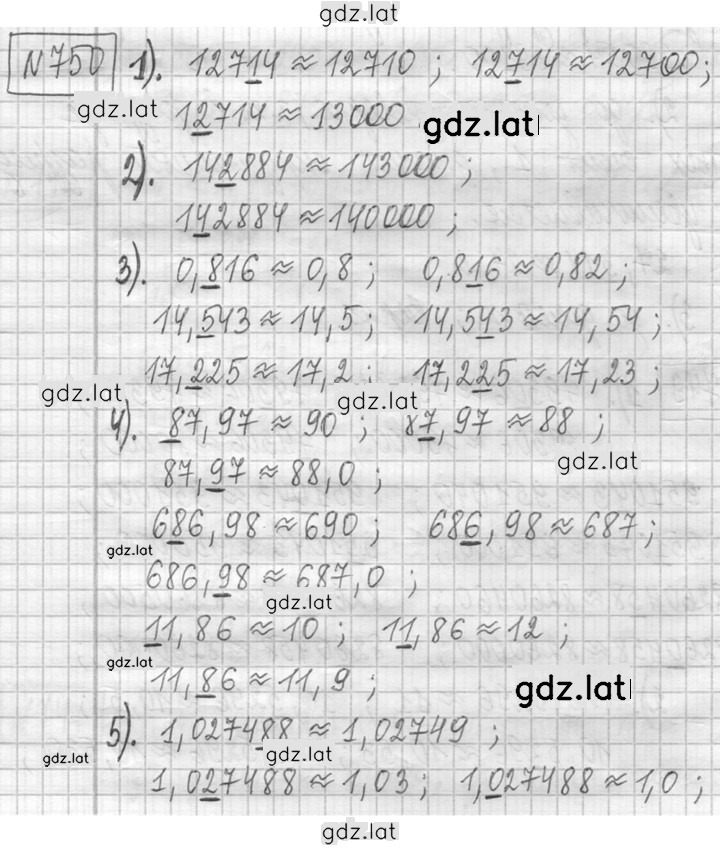 gdz.lat
№750 1). 12714 ≈ 12710 ; 12714 ≈ 12700 ;
gdz.lat
12714 ≈ 13000 gdz.lat
2). 142884 ≈ 143000 ;
142884 ≈ 140000 ;
3). 0,816 ≈ 0,8 ; 0,816 ≈ 0,82 ;
14,543 ≈ 14,5 ; 14,543 ≈ 14,54 ;
17,225 ≈ 17,2 ; 17,225 ≈ 17,23 ;
gdz.lat gdz.lat
4). 87,97 ≈ 90 ; 87,97 ≈ 88 ;
87,97 ≈ 88,0 ; gdz.lat
686,98 ≈ 690 ; 686,98 ≈ 687 ;
gdz.lat
686,98 ≈ 687,0 ;
gdz.lat
11,86 ≈ 10 ; 11,86 ≈ 12 ;
gdz.lat
11,86 ≈ 11,9 ; gdz.lat
5). 1,027488 ≈ 1,02749 ;
gdz.lat gdz.lat
1,027488 ≈ 1,03 ; 1,027488 ≈ 1,0 ;
gdz.lat